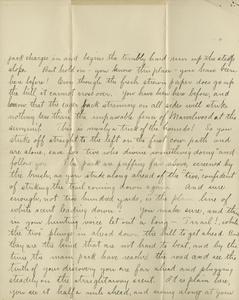 pack charges in and begins the terribly hard run up the steep
slope. But hold on - you know this place - you have been
here before! Even though the fresh steam paper does go up
the hill it cannot cross over. You have been here before, and
know that the eager pack streaming on all sides will strike
nothing less than the impassable fence of at the
summit! This is merely a trick of the hounds! So you
strike off straight to the left on the first cow path and
are alone, save for two who
follow you. The pack are puffing far above, screened by
the brush, as you steak along ahead of the two, confident
of striking the trail coming down again. And sure
enough, not two hundred yards, is the plain line of
white scent leading down! You make sure, and then
in your hunting voice let out a long "Trail", while
the two plunge on ahead down the hill to get ahead. But
they are the kind that are not hard to beat, and by the
time the main pack have reached the road and see the
truth of your discovery you are far ahead and plugging
steadily on the straightaway scent. It is plain here,
you see it half a mile ahead, and moving along at your